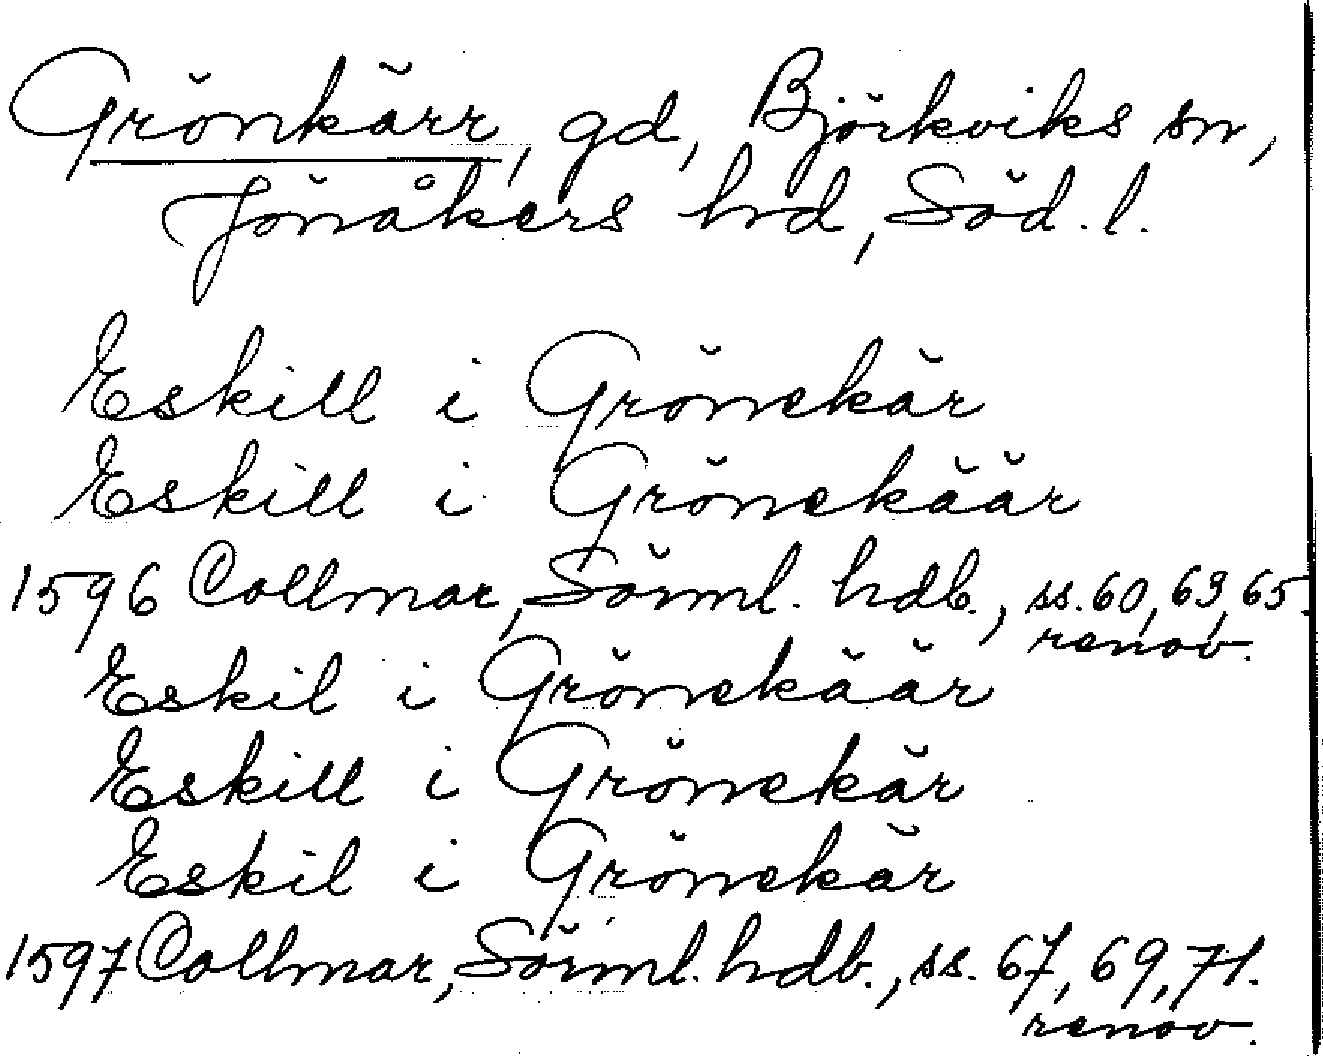 Grönkärr, gd, Björkviks sn,
Jönåkers hd, Söd. l.
Eskill i Grönekär
Eskill i Grönekäär
1596 Collmar, Sörml. hdb., ss. 60, 63, 65.
renov.
Eskil i Grönekäär
Eskill i Grönekär
Eskil i Grönekär
1597 Collmar, Sörml. hdb., ss. 67, 69, 71.
renov.